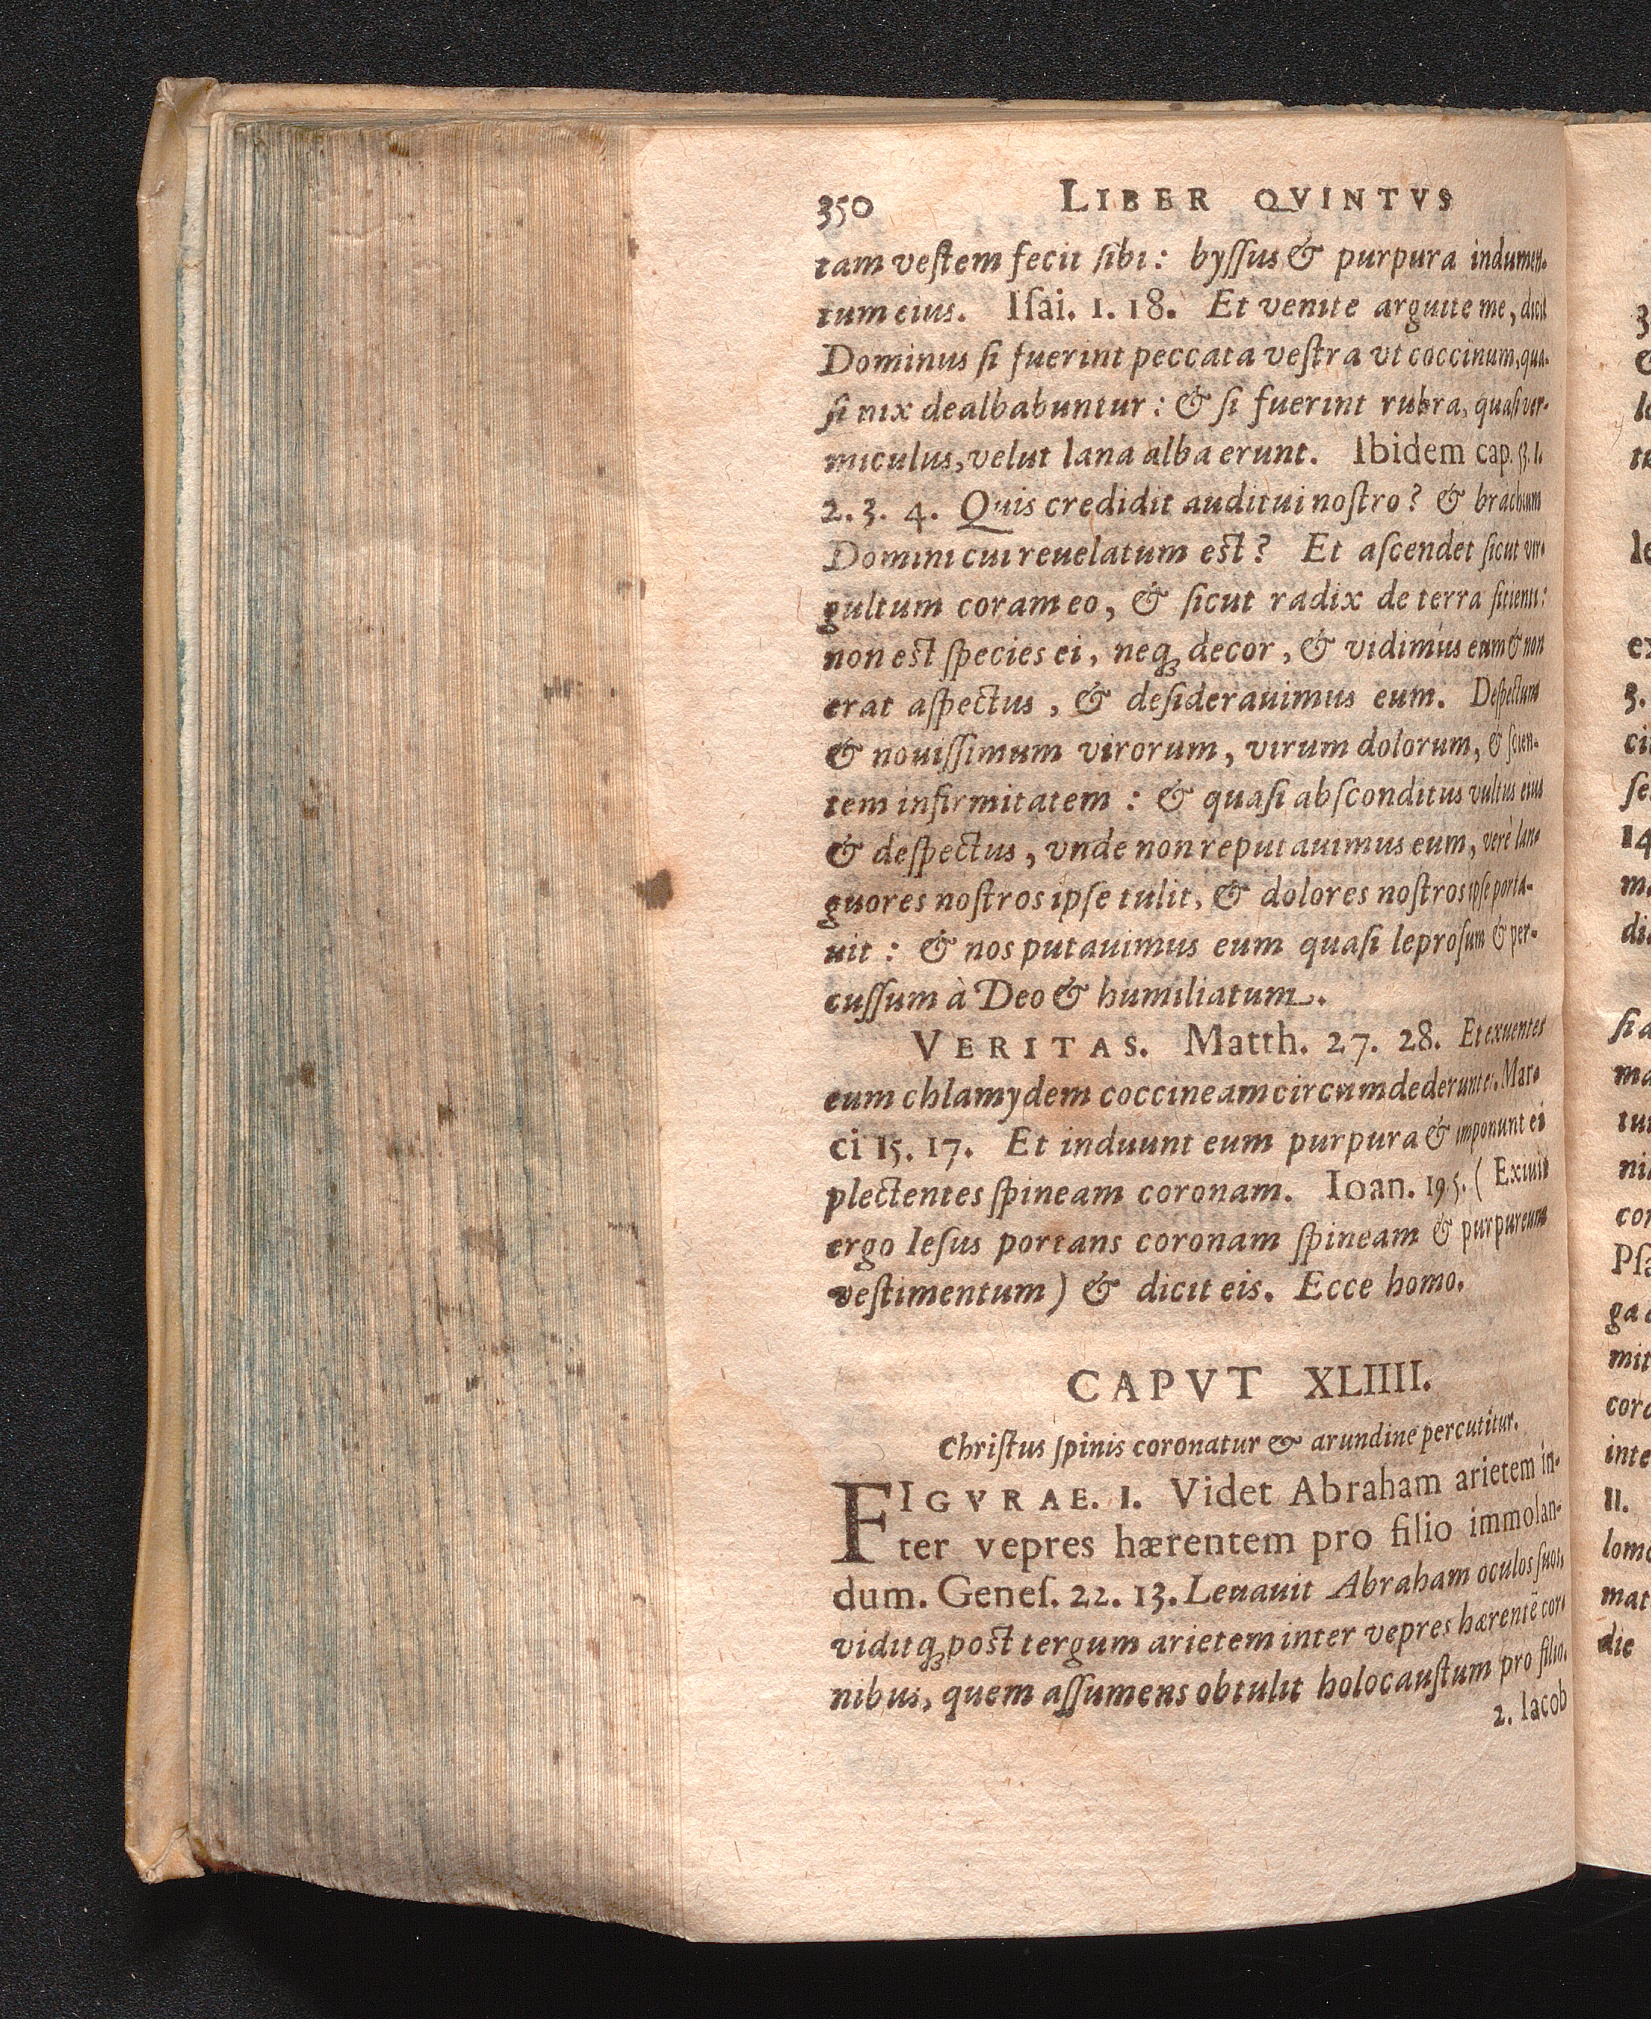 350 LIBER QVINTVS
tam veſtem fecit ſibi: byſſus & purpura indumen-
tum eius. Iſai. 1. 18. Et venite arguite me, dicit
Dominus ſi fuerint peccata veſtra vt coccinum, qua-
ſi nix dealbabuntur: & ſi fuerint rubra, quaſi ver-
miculus, velut lana alba erunt. Ibidem cap. 53. 1.
2. 3. 4. Quis credidit auditui noſtro? & brachium
Domini cui reuelatum eſt? Et aſcendet ſicut vir-
gultum coram eo, & ſicut radix de terra ſitienti:
non eſt ſpecies ei, neq; decor, & vidimus eum & non
erat aſpectus, & deſiderauimus eum. Deſpectum
& nouiſſimum virorum, virum dolorum, & ſcien-
tem infirmitatem: & quaſi abſconditus vultus eius
& deſpectus, vnde non reputauimus eum, verè lan-
guores noſtros ipſe tulit, & dolores noſtros ipſe porta-
uit: & nos putauimus eum quaſi leproſum & per-
cuſſum à Deo & humiliatum.
VERITAS. Matth. 27. 28. Et exuentes
eum chlamydem coccineam circumdederunt ei. Mar-
ci 15. 17. Et induunt eum purpura & imponunt ei
plectentes ſpineam coronam. Ioan. 19 5. ( Exiuit
ergo Ieſus portans coronam ſpineam & purpureum
veſtimentum) & dicit eis. Ecce homo.
CAPVT XLIIII.
Chriſtus ſpinis coronatur & arundine percutitur.
FIGVRAE. 1. Videt Abraham arietem in-
ter vepres hærentem pro filio immolan-
dum. Geneſ. 22. 13. Leuauit Abraham oculos ſuos,
viditq; poſt tergum arietem inter vepres hærentē cor-
nibus, quem aſſumens obtulit holocauſtum pro filio.
2. Iacob